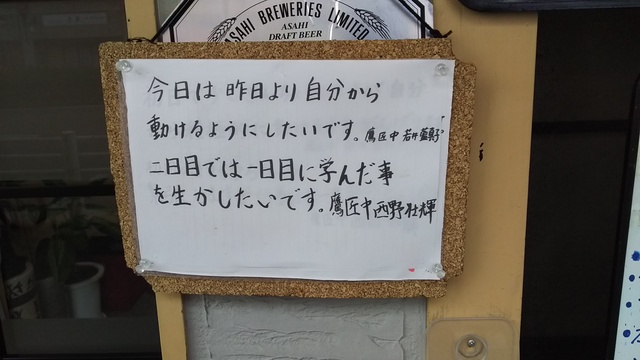 ASAHI BREWERIES LIMITED
ASAHI
DRAFT BEER
今日は昨日より自分から
動けるようにしたいです。鷹匠中 若井
二日目では一日目に学んだ事
を生かしたいです。鷹匠中 西野壮輝